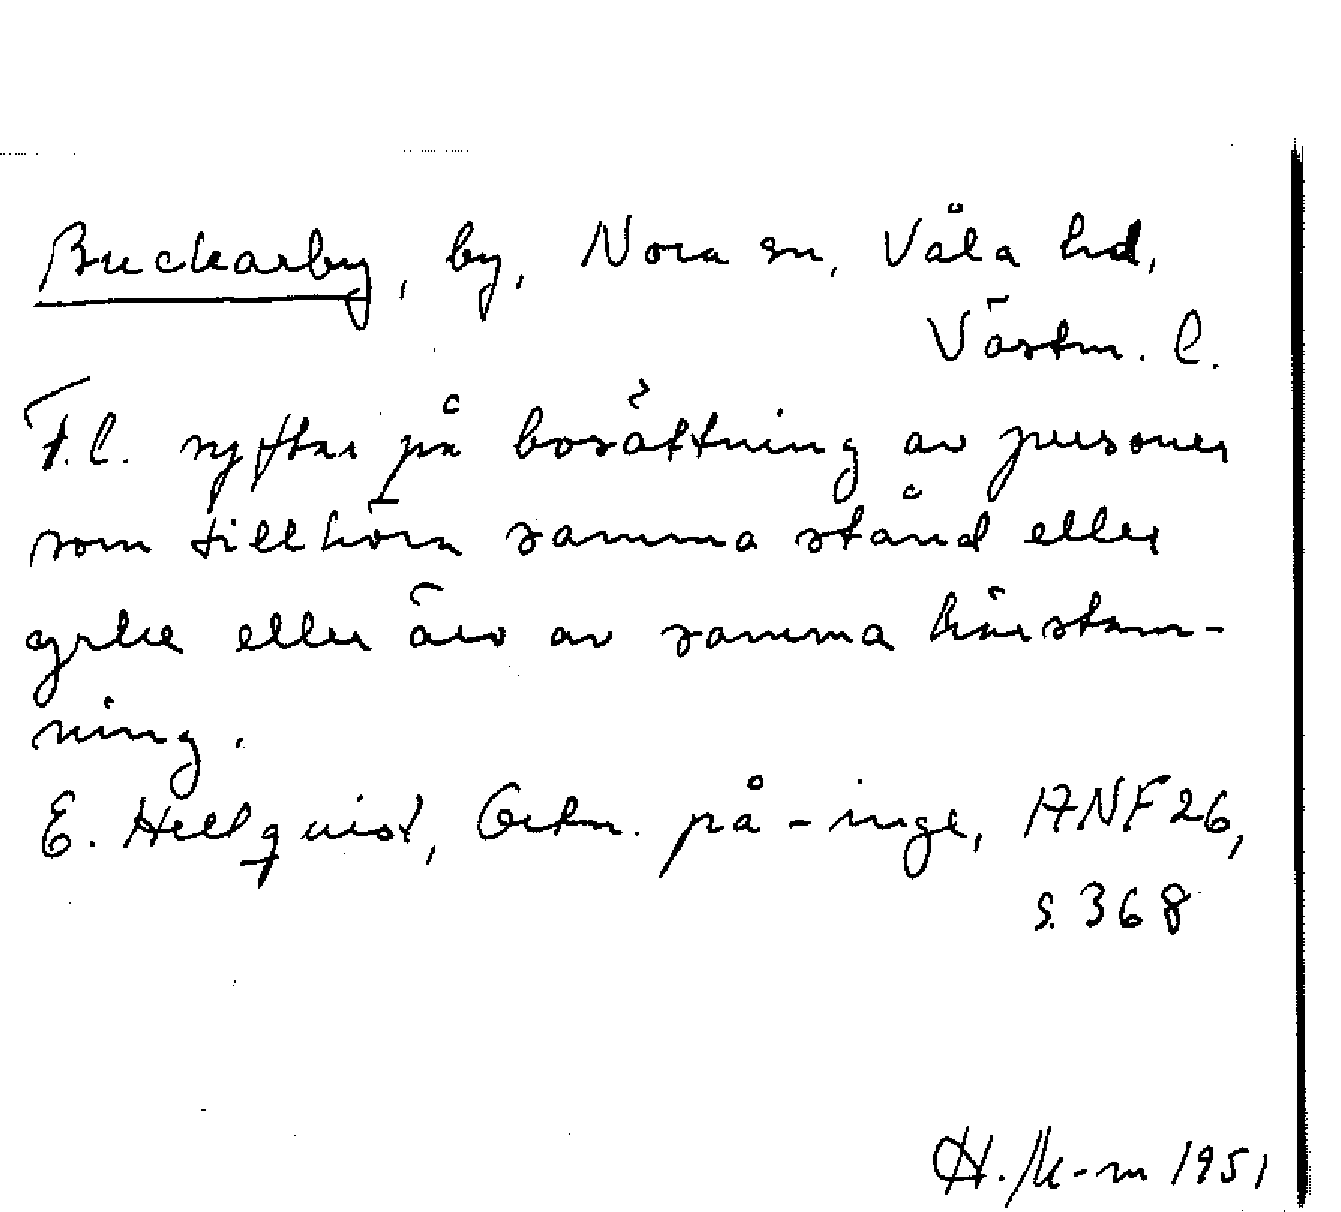 Buckarby, by, Nora sn, Våla hd,
Västm. l.
F.l. syftar på bosättning av personer
som tillhöra samma stånd eller
yrke eller äro av samma härstam-
ning.
E. Hellquist, Ortn. på -inge, ANF 26,
s. 368
1951